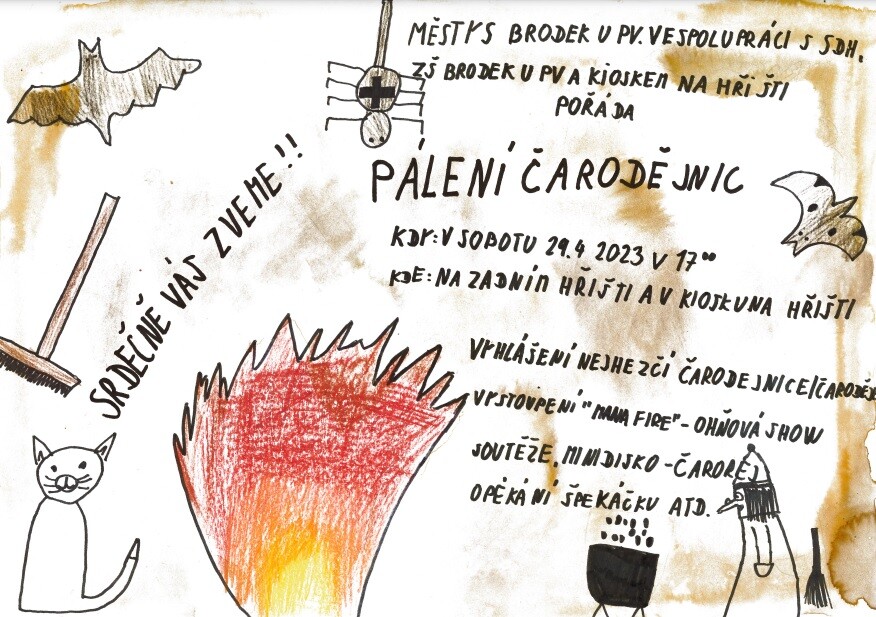 MĚSTYS BRODEK U PV. VE SPOLUPRÁCI S SDH,
ZŠ BRODEK U PV A KIOSKEM NA HŘIŠTI
POŘÁDA
PÁLENÍ ČARODĚJNIC
KDY: V SOBOTU 29.4 2023 V 17⁰⁰
KDE: NA ZADNÍM HŘIŠTI A V KIOSKU NA HŘIŠTI
SRDĚČNĚ VÁS ZVEME!!
VYHLÁŠENÍ NEJHEZČÍ ČARODEJNICE/ČARODĚJE
VYSTOUPENÍ "MANA FIRE" - OHŇOVÁ SHOW
SOUTĚŽE, MINIDISKO - ČAROREJ
OPÉKÁNÍ ŠPEKÁČKU ATD.